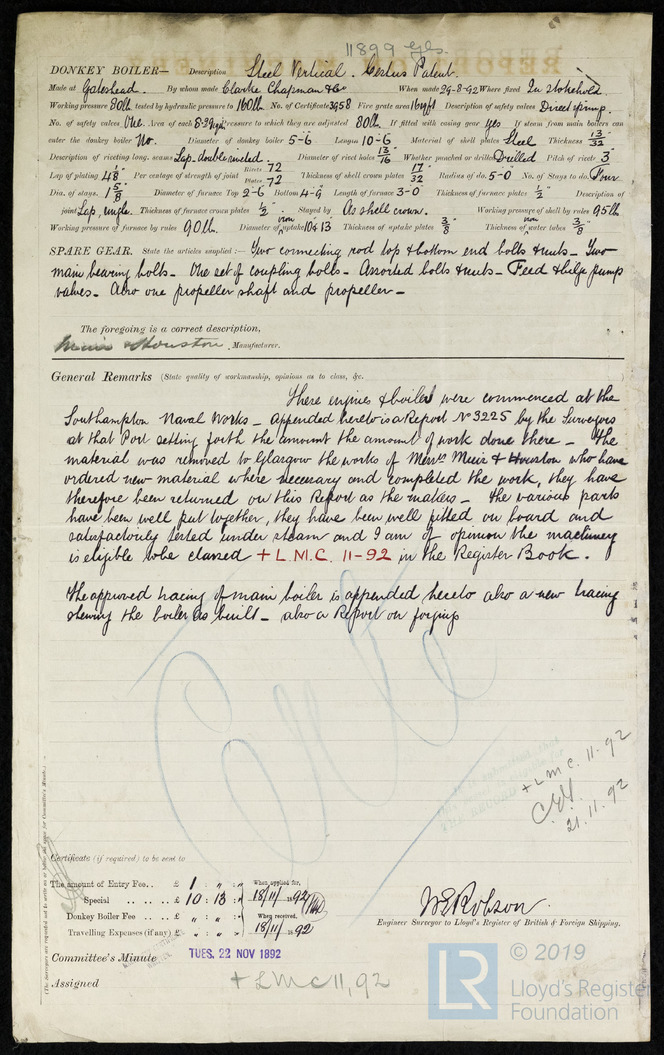 11899 Gls.
DONKEY BOILER— Description Steel Vertical. Cestus Patent.
Made at Gateshead. By whom made Clarke Chapman & Co When made 29-8-92 Where fixed In stokehold
Working pressure 80lb tested by hydraulic pressure to 160lb. No. of Certificate 3958 Fire grate area 16 sq ft Description of safety valves Direct spring.
No. of safety valves One. Area of each 8.29 sq in Pressure to which they are adjusted 80lb. If fitted with easing gear yes If steam from main boilers can
enter the donkey boiler No. Diameter of donkey boiler 5-6 Length 10-6 Material of shell plates Steel Thickness 13/32"
Description of riveting long. seams Lap. double riveted. Diameter of rivet holes 13/16" Whether punched or drilled Drilled Pitch of rivets 3"
Lap of plating 4 1/8" Per centage of strength of joint Rivets 72 Plates 72 Thickness of shell crown plates 17/32" Radius of do. 5-0 No. of Stays to do. Four
Dia. of stays. 1 5/8" Diameter of furnace Top 2-6 Bottom 4-9 Length of furnace 3-0 Thickness of furnace plates 1/2" Description of
joint Lap, single. Thickness of furnace crown plates 1/2" Stayed by As shell crown. Working pressure of shell by rules 95lb
Working pressure of furnace by rules 90lb. Diameter of iron uptake 10 & 13 Thickness of uptake plates 3/8" Thickness of iron water tubes 3/8"
SPARE GEAR. State the articles supplied:— Two connecting rod top & bottom end bolts & nuts — Two
main bearing bolts — One set of coupling bolts — Assorted bolts & nuts — Feed & bilge pump
valves — Also one propeller shaft and propeller —
The foregoing is a correct description,
Muir & Houston, Manufacturer.
General Remarks (State quality of workmanship, opinions as to class, &c.
These engines & boiler were commenced at the
Southampton Naval Works — Appended hereto is a Report No 3225 by the Surveyors
at that Port setting forth the amount the amount of work done there — The
material was removed to Glasgow the works of Messrs Muir & Houston who have
ordered new material where necessary and completed the work, they have
therefore been returned on this Report as the makers — The various parts
have been well put together, they have been well fitted on board and
satisfactorily tested under steam and I am of opinion the machinery
is eligible to be classed + L.M.C. 11-92 in the Register Book.
The approved tracing of main boiler is appended hereto also a new tracing
shewing the boiler as built — also a Report on forgings
+ L M C. 11.92
21.11.92
Certificate (if required) to be sent to
The amount of Entry Fee.. £ 1 : " : " When applied for,
Special .. .. .. .. £ 10 : 13 : " 18/11/1892
Donkey Boiler Fee .. .. £ " : " : " When received,
Travelling Expenses (if any) £ " : " : " 18/11/1892
W E Robson.
Engineer Surveyor to Lloyd's Register of British & Foreign Shipping.
Committee's Minute TUES. 22 NOV 1892
Assigned + L M C 11,92
LR © 2019
Lloyd's Register
Foundation